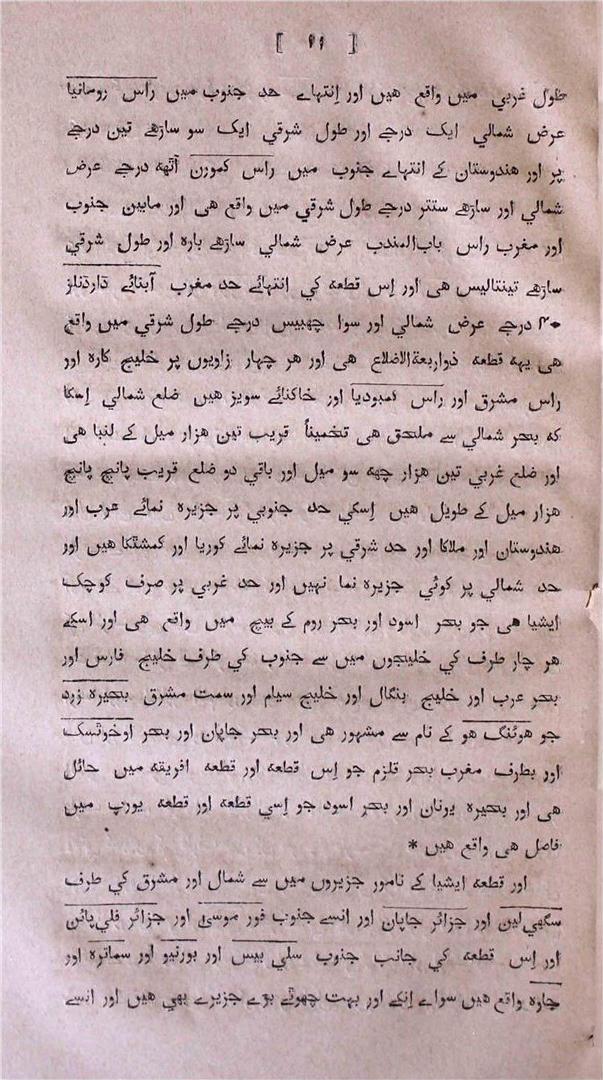 [ ١١ ]
طول غربي میں واقع هیں اور اِنتہاے حد جنوب میں راس رومانیا
عرض شمالي ایک درجے اور طول شرقي ایک سو ساڑھے تین درجے
پر اور هندوستان کے انتہاے جنوب میں راس کمورن آٹھہ درجے عرض
شمالي اور ساڑھے ستتر درجے طول شرقي میں واقع هی اور مابین جنوب
اور مغرب راس باب‌المندب عرض شمالي ساڑھے بارہ اور طول شرقي
ساڑھے تینتالیس هی اور اِس قطعہ کي انتہائے حد مغرب آبنائے ڈارڈنلز
۴۰ درجے عرض شمالي اور سوا چھبیس درجے طول شرقي میں واقع
هی یہہ قطعہ ذواربعةالاضلاع هی اور هر چہار زاویوں پر خلیج کارہ اور
راس مشرق اور راس کمبودیا اور خاکنائے سویز هیں ضلع شمالي اِسکا
کہ بحر شمالي سے ملحق هی تخمیناً قریب تین هزار میل کے لنبا هی
اور ضلع غربي تین هزار چھہ سو میل اور باقي دو ضلع قریب پانچ پانچ
هزار میل کے طویل هیں اِسکي حد جنوبي پر جزیرہ نمائے عرب اور
هندوستان اور ملاکا اور حد شرقي پر جزیرہ نمائے کوریا اور کمشتکا هیں اور
حد شمالي پر کوئي جزیرہ نما نہیں اور حد غربي پر صرف کوچک
ایشیا هی جو بحر اسود اور بحر روم کے بیچ میں واقع هی اور اسکے
هر چار طرف کي خلیجوں میں سے جنوب کي طرف خلیج فارس اور
بحر عرب اور خلیج بنگال اور خلیج سیام اور سمت مشرق بحیرہ زرد
جو هوٹنگ هو کے نام سے مشہور هی اور بحر جاپان اور بحر اوخوٹسک
اور بطرف مغرب بحر قلزم جو اِس قطعہ اور قطعہ افریقہ میں حائل
هی اور بحیرہ یونان اور بحر اسود جو اِسي قطعہ اور قطعہ یورپ میں
فاصل هی واقع هیں *
اور قطعہ ایشیا کے نامور جزیروں میں سے شمال اور مشرق کي طرف
سگھي‌لین اور جزائر جاپان اور انسے جنوب فور موسیٰ اور جزائر فلي‌پائن
اور اِس قطعہ کي جانب جنوب سلي بیس اور بورنیو اور سماترہ اور
جاوہ واقع هیں سواے اِنکے اور بہت چھوٹے بڑے جزیرے بھي هیں اور انسے